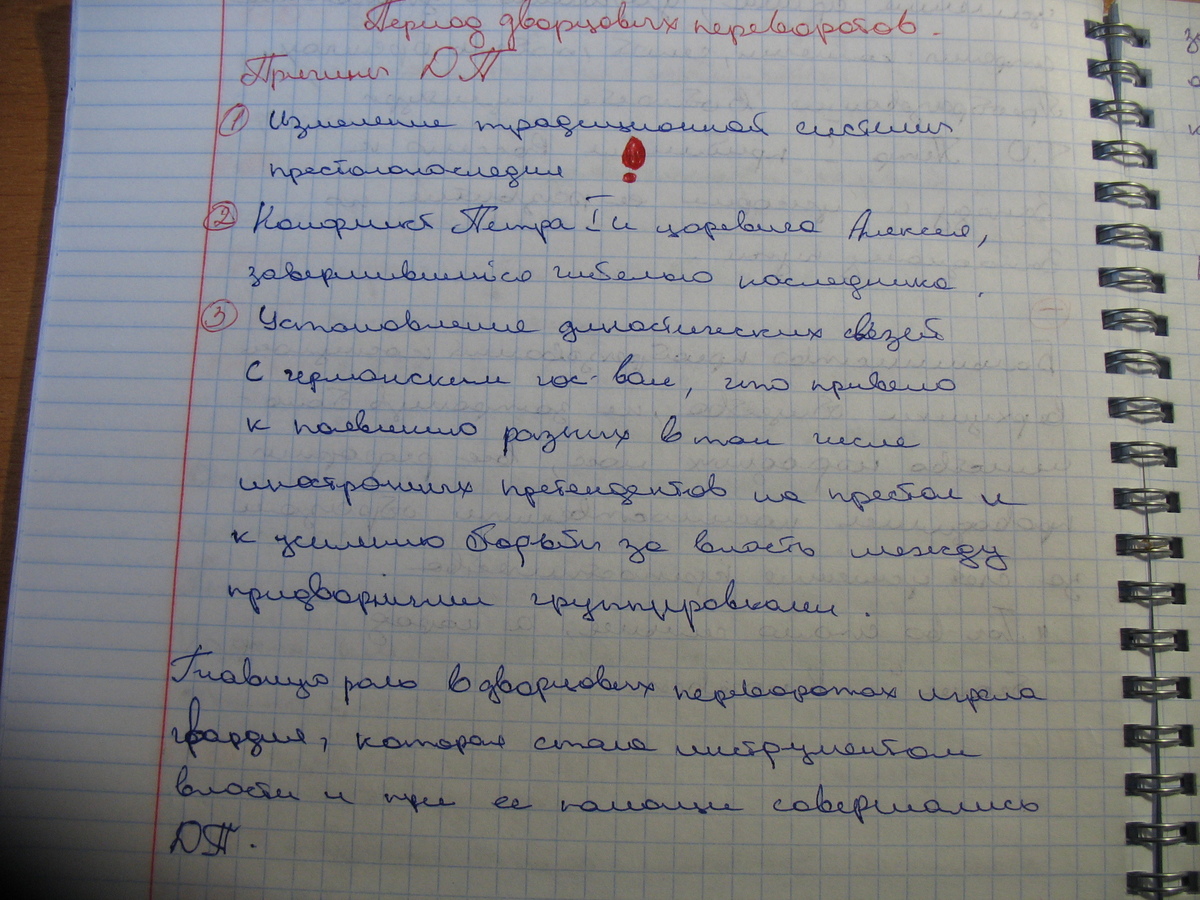 Период дворцовых переворотов.
Причины ДП
1 Изменение традиционной системы
престолонаследия !
2 Конфликт Петра I и царевича Алексея,
завершившийся гибелью наследника.
3 Установление династических связей
с германским гос-вом, что привело
к появлению разных в том числе
иностранных претендентов на престол и
к усилению борьбы за власть между
придворными группировками.
Главную роль в дворцовых переворотах играла
гвардия, которая стала инструментом
власти и при ее помощи совершались
ДП.